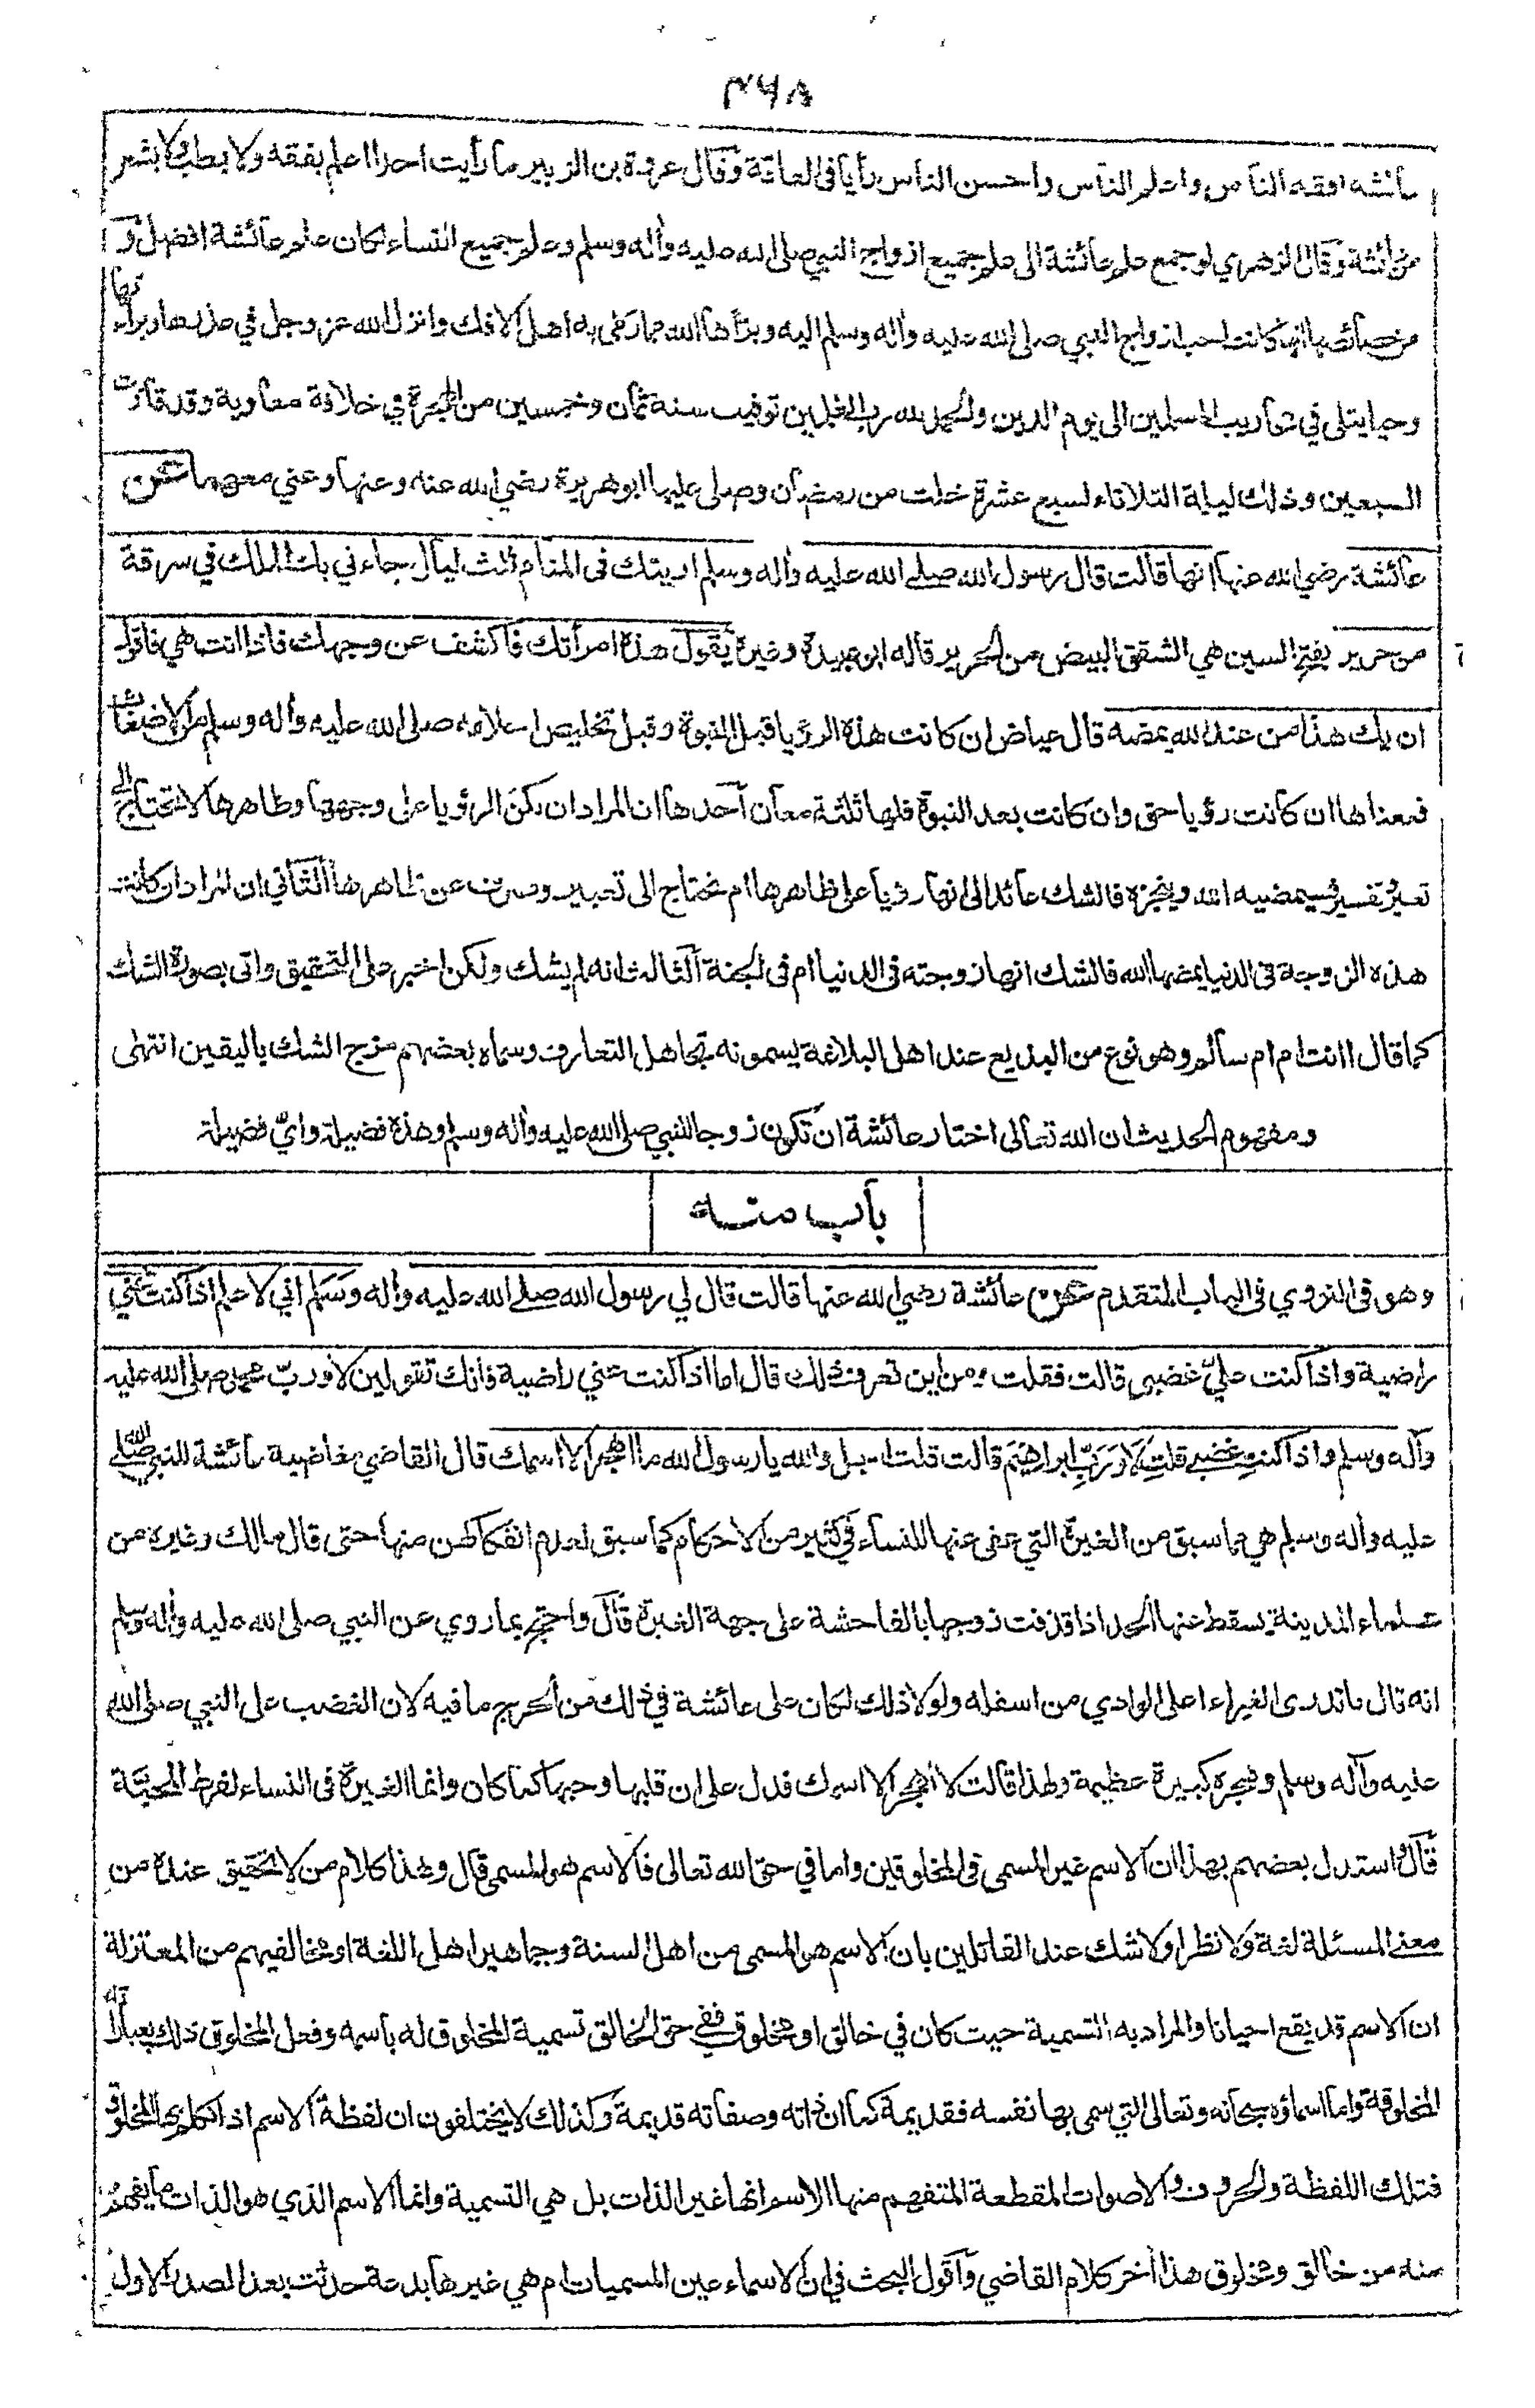 ٣٦٨
عائشة افقه الناس واعلم الناس واحسن الناس رأيا فى العامة وقال عروة بن الزبير ما رأيت احدا اعلم بفقه ولا بطب ولا بشعر
من عائشة وقال الزهري لو جمع علم عائشة الى علم جميع ازواج النبي صلى الله عليه وأله وسلم وعلم جميع النساء لكان علم عائشة افضل و
من خصائصها انها كانت احب ازواج النبي صلى الله عليه وأله وسلم اليه وبرأها الله مما رمى به اهل الافك وانزل الله عز وجل في عذرها وبراءتها
وحيا يتلى في محاريب المسلمين الى يوم الدين والحمد لله رب العلمين توفيت سنة ثمان وخمسين من الهجرة في خلافة معاوية وقد قاربت
السبعين وذلك ليلة الثلاثاء لسبع عشرة خلت من رمضان وصلى عليها ابو هريرة رضي الله عنه وعنها وعني معهما عن
عائشة رضي الله عنها انها قالت قال رسول الله صلى الله عليه وأله وسلم اريتك فى المنام ثلث ليال جاءني بك الملك في سرقة
من حرير بفتح السين هي الشقق البيض من الحرير قاله ابو عبيدة وغيره يقول هذه امرأتك فاكشف عن وجهك فاذا انت هي فاقول
ان يك هذا من عند الله يمضه قال عياض ان كانت هذه الرؤيا قبل النبوة وقبل تخليص احلامه صلى الله عليه وأله وسلم من الاضغاث
فمعناها ان كانت رؤيا حق وان كانت بعد النبوة فلها ثلثة معان أحدها ان المراد ان تكن الرؤيا على وجهها وظاهرها لا تحتاج الى
تعبير وتفسير فسيمضيه الله وينجزه فالشك عائد الى انها رؤيا على ظاهرها ام تحتاج الى تعبير وصرف عن ظاهرها الثاني ان المراد ان كانت
هذه الزوجة فى الدنيا يمضها الله فالشك انها زوجته فى الدنيا ام فى الجنة الثالث انه لم يشك ولكن اخبر على التحقيق واتى بصورة الشك
كما قال اانت ام ام سالم وهو نوع من البديع عند اهل البلاغة يسمونه تجاهل التعارف وسماه بعضهم مزج الشك باليقين انتهى
ومفهوم الحديث ان الله تعالى اختار عائشة ان تكون زوجا للنبي صلى الله عليه وأله وسلم وهذه فضيلة واي فضيلة
باب منه
وهو فى النووي فى الباب المتقدم عن عائشة رضي الله عنها قالت قال لي رسول الله صلى الله عليه وأله وسلم اني لاعلم اذا كنت عني
راضية واذا كنت علي غضبى قالت فقلت ومن اين تعرف ذلك قال اما اذا كنت عني راضية فانك تقولين لا ورب محمد صلى الله عليه
وأله وسلم واذا كنت غضبى قلت لا ورب ابراهيم قالت قلت اجل والله يا رسول الله ما اهجر الا اسمك قال القاضي مغاضبة عائشة للنبي صلى الله
عليه وأله وسلم هي مما سبق من الغيرة التي عفى عنها للنساء في كثير من الاحكام كما سبق لعدم انفكاكهن منها حتى قال مالك وغيره من
علماء المدينة يسقط عنها الحد اذا قذفت زوجها بالفاحشة على جهة الغيرة قال واحتج بما روي عن النبي صلى الله عليه وأله وسلم
انه قال ما تدرى الغيراء اعلى الوادي من اسفله ولولا ذلك لكان على عائشة في ذلك من الحرج ما فيه لان الغضب على النبي صلى الله
عليه وأله وسلم وهجره كبيرة عظيمة ولهذا قالت لا اهجر الا اسمك فدل على ان قلبها وحبها كما كان وانما الغيرة فى النساء لفرط المحبة
قال واستدل بعضهم بهذا ان الاسم غير المسمى فى المخلوقين واما في حق الله تعالى فالاسم هو المسمى قال وهذا كلام من لا تحقيق عنده من
معنى المسئلة لغة ولا نظرا ولا شك عند القائلين بان الاسم هو المسمى من اهل السنة وجماهير اهل اللغة او مخالفيهم من المعتزلة
ان الاسم قد يقع احيانا والمراد به التسمية حيث كان في خالق او مخلوق ففي حق الخالق تسمية المخلوق له باسمه وفعل المخلوق ذلك بعباراته
المخلوقة واما اسماؤه سبحانه وتعالى التي سمى بها نفسه فقديمة كما ان ذاته وصفاته قديمة وكذلك لا يختلفون ان لفظة الاسم اذا تكلم بها المخلوق
فتلك اللفظة والحروف والاصوات المقطعة المتفهم منها الاسم انها غير الذات بل هي التسمية وانما الاسم الذي هو الذات ما يفهم
منه من خالق ومخلوق هذا أخر كلام القاضي وأقول البحث في ان الاسماء عين المسميات ام هي غيرها بدعة حدثت بعد الصدر الاول